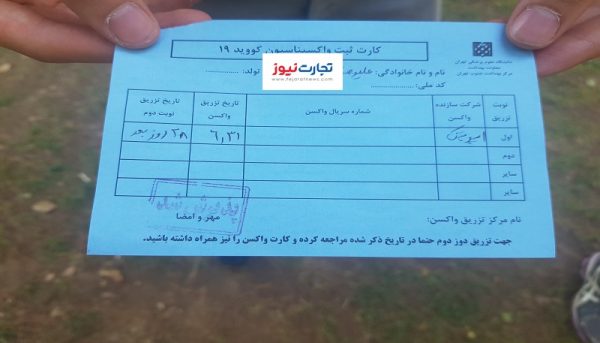 کارت ثبت واکسیناسیون کووید ۱۹
دانشگاه علوم پزشکی تهران
معاونت بهداشت
مرکز بهداشت جنوب تهران
نام و نام خانوادگی: علیرضا تولد: ............
کد ملی: ............
تجارت‌نیوز
www.tejaratnews.com
نوبت تزریق شرکت سازنده واکسن شماره سریال واکسن تاریخ تزریق واکسن تاریخ تزریق نوبت دوم
اول ۶,۳۱ ۲۸ روز بعد
دوم
سایر
سایر
مهر و امضا
نام مرکز تزریق واکسن:
جهت تزریق دوز دوم حتما در تاریخ ذکر شده مراجعه کرده و کارت واکسن را نیز همراه داشته باشید.